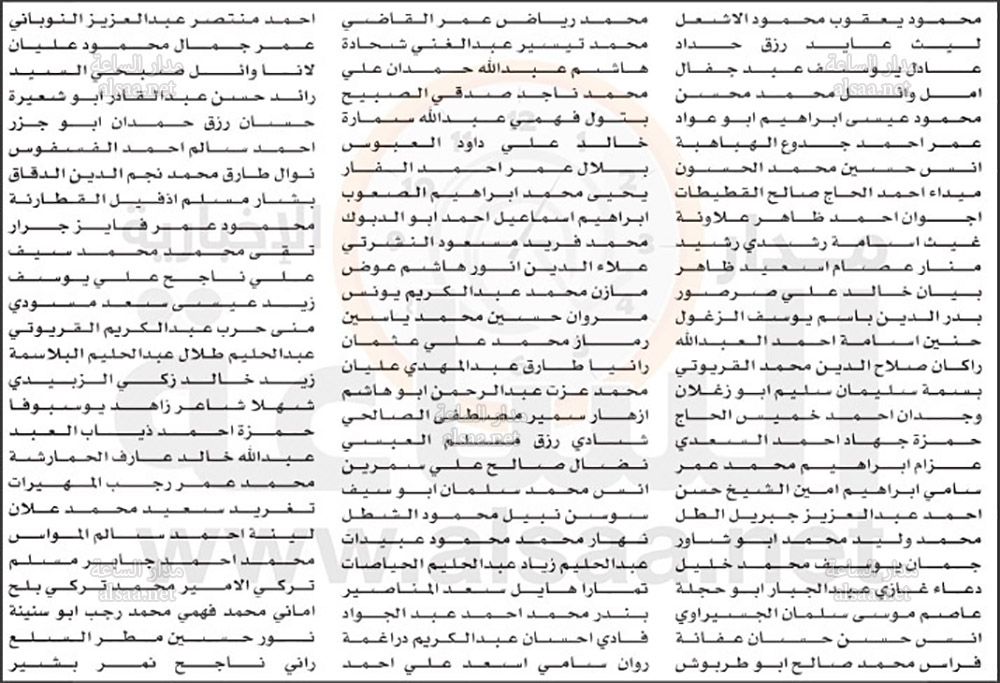 محمود يعقوب محمود الاشعل
ليث عايد رزق حداد
عادل يوسف عبد جفال
امل وائل محمد محسن
محمود عيسى ابراهيم ابو عواد
عمر احمد جدوع الهباهبة
انس حسين محمد الحسون
ميداء احمد الحاج صالح القطيطات
اجوان احمد ظاهر علاونة
غيث اسامة رشدي رشيد
منار عصام اسعيد ظاهر
بيان خالد علي صرصور
بدر الدين باسم يوسف الزغول
حنين اسامة احمد العبدالله
راكان صلاح الدين محمد القريوتي
بسمة سليمان سليم ابو زغلان
وجدان احمد خميس الحاج
حمزة جهاد احمد السعدي
عزام ابراهيم محمد عمر
سامي ابراهيم امين الشيخ حسن
احمد عبدالعزيز جبريل الطل
محمد وليد محمد ابو شاور
جمان يوسف محمد خليل
دعاء غازي عبدالجبار ابو حجلة
عاصم موسى سلمان الجسيراوي
انس حسن حسان عفانة
فراس محمد صالح ابو طربوش
محمد رياض عمر القاضي
محمد تيسير عبدالغني شحادة
هاشم عبدالله حمدان علي
محمد ناجد صدقي الصبيح
بتول فهمي عبدالله سمارة
خالد علي داود العبوس
بلال عمر احمد الفار
يحيى محمد ابراهيم الصعوب
ابراهيم اسماعيل احمد ابو الدبوك
محمد فريد مسعود النشرتي
علاء الدين انور هاشم عوض
مازن محمد عبدالكريم يونس
مروان حسين محمد ياسين
رماز محمد علي عثمان
رانيا طارق عبدالمهدي عليان
محمد عزت عبدالرحمن ابو هاشم
ازهار سمير مصطفى الصالحي
شادي رزق قسم العبسي
نضال صالح علي سمرين
انس محمد سلمان ابو سيف
سوسن نبيل محمود الشطل
نهار محمد محمود عبيدات
عبدالحليم زياد عبدالحليم الحياصات
تمارا هايل سعد المناصير
بندر محمد احمد عبد الجواد
فادي احسان عبدالكريم دراغمة
روان سامي اسعد علي احمد
احمد منتصر عبدالعزيز النوباني
عمر جمال محمود عليان
لانا وائل صبحي السيد
رائد حسن عبدالقادر ابو شعيرة
حسان رزق حمدان ابو جزر
احمد سالم احمد الفسفوس
نوال طارق محمد نجم الدين الدقاق
بشار مسلم اذفيل القطارنة
محمود عمر فايز جرار
تقى محمد محمد سيف
علي ناجح علي يوسف
زيد عيسى سعد مسودي
منى حرب عبدالكريم القريوتي
عبدالحليم طلال عبدالحليم البلاسمة
زيد خالد زكي الزبيدي
شهلا شاعر زاهد يوسبوفا
حمزة احمد ذياب العبد
عبدالله خالد عارف الحمارشة
محمد عمر رجب المهيرات
تغريد سعيد محمد علان
لينة احمد سالم المواس
محمد احمد جابر مسلم
تركي الامير محمد تركي بلح
اماني محمد فهمي محمد رجب ابو سنينة
نور حسين مطر السلع
راني ناجح نمر بشير
مدار الساعة
alsaa.net
مدار الساعة الإخبارية
www.alsaa.net